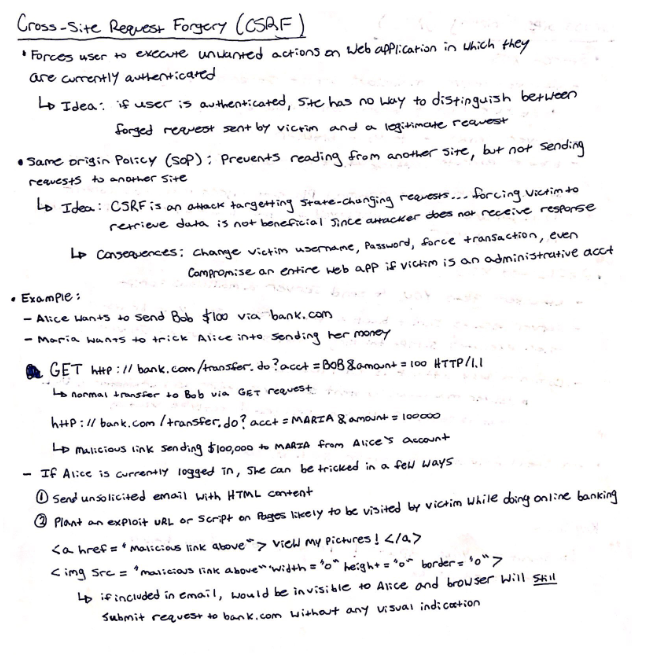 Cross-Site Request Forgery (CSRF)
• Forces user to execute unwanted actions on web application in which they
are currently authenticated
↳ Idea: if user is authenticated, site has no way to distinguish between
forged request sent by victim and a legitimate request
• Same origin Policy (SOP): Prevents reading from another site, but not sending
requests to another site
↳ Idea: CSRF is an attack targetting state-changing requests... forcing victim to
retrieve data is not beneficial since attacker does not receive response
↳ Consequences: change victim username, password, force transaction, even
compromise an entire web app if victim is an administrative acct
• Example:
- Alice wants to send Bob $100 via bank.com
- Maria wants to trick Alice into sending her money
GET http://bank.com/transfer.do?acct=BOB&amount=100 HTTP/1.1
↳ normal transfer to Bob via GET request
http://bank.com/transfer.do?acct=MARIA&amount=100000
↳ malicious link sending $100,000 to MARIA from Alice's account
- If Alice is currently logged in, she can be tricked in a few ways
① Send unsolicited email with HTML content
② Plant an exploit URL or script on pages likely to be visited by victim while doing online banking
<a href="malicious link above"> view my pictures! </a>
<img src="malicious link above" width="0" height="0" border="0">
↳ if included in email, would be invisible to Alice and browser will still
submit request to bank.com without any visual indication